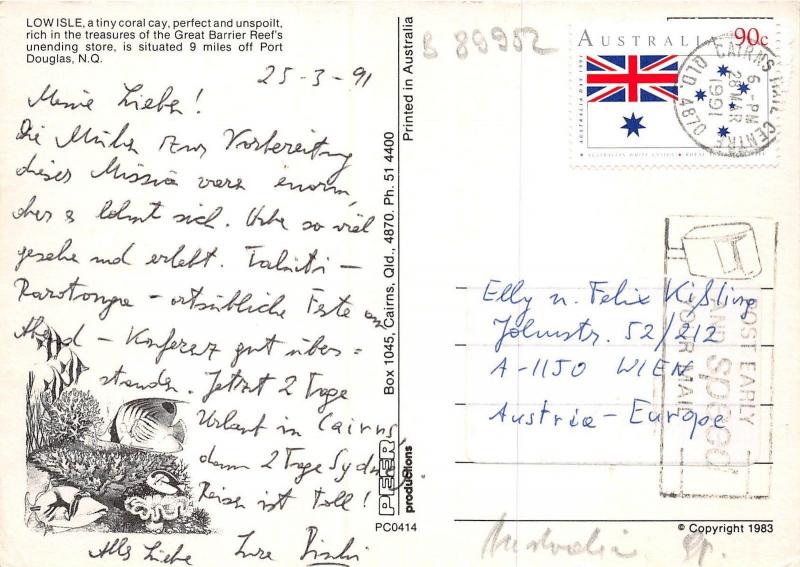 LOW ISLE, a tiny coral cay, perfect and unspoilt,
rich in the treasures of the Great Barrier Reef's
unending store, is situated 9 miles off Port
Douglas, N.Q.
25-3-91
Meine Lieben!
Die Mühen zur Vorbereitung
dieser Mission waren enorm,
aber es lohnt sich. Habe so viel
gesehen und erlebt. Tahiti –
Rarotonga – ortsübliche Feste am
Abend – Konferenz gut über=
standen. Jetzt 2 Tage
Urlaub in Cairns,
dann 2 Tage Sydney
Reise ist toll!
Alles Liebe Eure
PC0414
Printed in Australia
Box 1045, Cairns, Qld., 4870. Ph. 51 4400
PEER
productions
B 89952
AUSTRALIA 90c
AUSTRALIA DAY 1991
CAIRNS MAIL CENTRE
6 - PM
28 MAR
1991
QLD. 4870
POST EARLY
AND speed
YOUR MAIL
Elly u. Felix Kißling
Johnstr. 52/212
A-1150 WIEN
Austria - Europe
© Copyright 1983
Australia